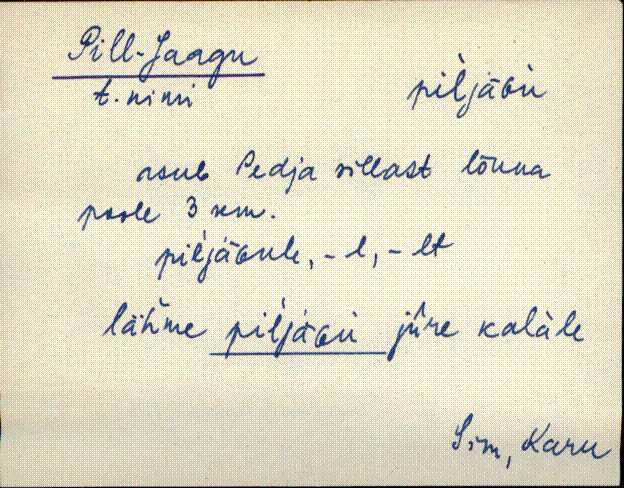 Pill-Jaagu
t. nimi
pil̀jäGù
asub Pedja sillast lõuna
poole 3 km.
pil̀jäGule, -l, -lt
lähme pil̀jäGù jũre kalàle
Sim, Karu